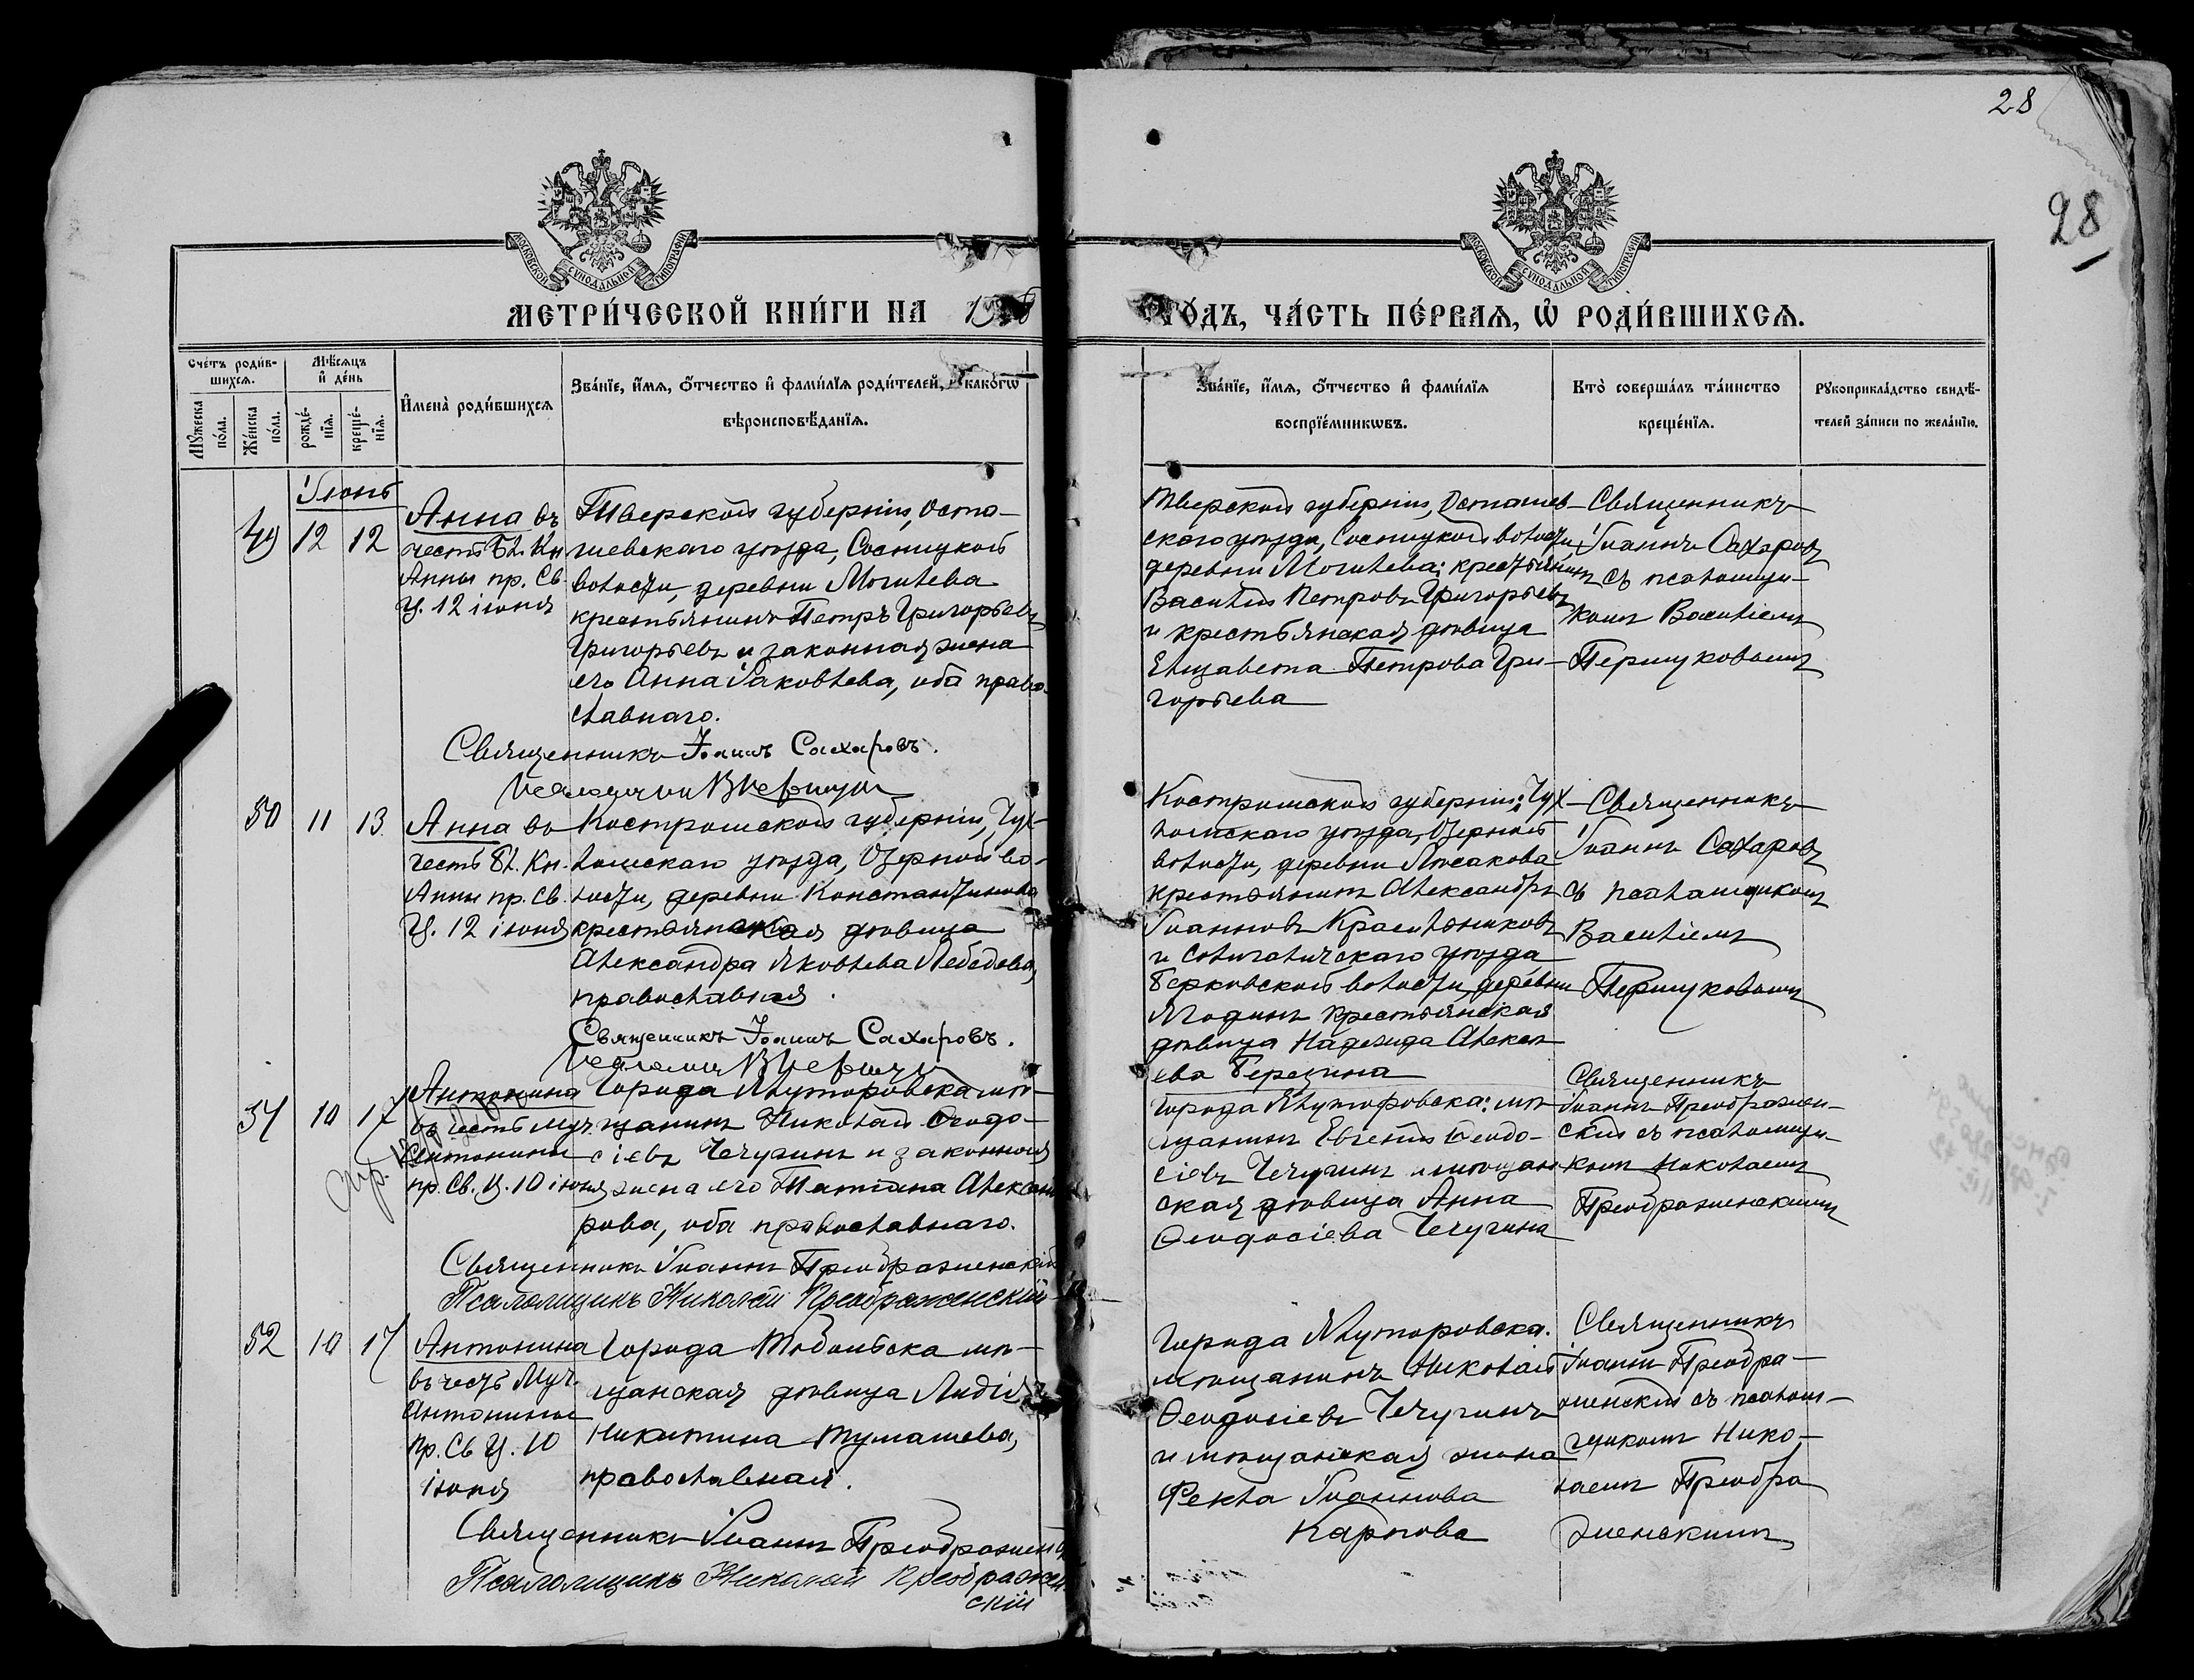 28
28
МОСКОВСКОЙ СУНОДАЛЬНОЙ ТИПОГРАФІИ
МОСКОВСКОЙ СУНОДАЛЬНОЙ ТИПОГРАФІИ
МЕТРИ́ЧЕСКОЙ КНИ́ГИ НА
ГО́ДЪ, ЧА́СТЬ ПЕ́РВАѦ, Ѽ РОДИ́ВШИХСѦ.
Сче́тъ роди́в-
шихсѧ.
Мѣ́сѧцъ
и҆ де́нь
Мꙋ́жеска
по́ла.
Же́нска
по́ла.
рожде́-
нїѧ.
креще́-
нїѧ.
И҆мена̀ роди́вшихсѧ
Зва́нїе, и҆́мѧ, ѻ҆́тчество и҆ фами́лїѧ роди́телей, и҆ како́гѡ
вѣроисповѣ́данїѧ.
Зва́нїе, и҆́мѧ, ѻ҆́тчество и҆ фами́лїѧ
воспрїе́мникѡвъ.
Кто̀ соверша́лъ та́инство
креще́нїѧ.
Рꙋкоприкла́дство свидѣ́-
телей за́писи по жела́нїю.
Іюнь
49 12 12
Анна въ
честь Бл. Кн
Анны пр. Св.
Ц. 12 іюня
Тверской губерніи, Оста-
шевскаго уѣзда, Сосницкой
волости, деревни Могилева
крестьянинъ Петръ Григорьевъ
Григорьевъ и законная жена
его Анна Іаковлева, оба право-
славнаго.
Священникъ Іоаннъ Сахаровъ.
Тверской губерніи, Осташев-
скаго уѣзда, Сосницкой волости,
деревни Могилева: крестьянинъ
Василій Петровъ Григорьевъ
и крестьянская дѣвица
Елизавета Петрова Гри-
горьева
Священникъ
Іоаннъ Сахаровъ
съ псаломщи-
комъ Василіемъ
Першуковымъ
50 11 13
Анна во
честь Бл. Кн.
Анны пр. Св.
Ц. 12 іюня
Костромской губерніи, Чух-
ломскаго уѣзда, Озерной во-
лости, деревни Константинова
крестьянская дѣвица
Александра Яковлева Лебедева,
православная.
Священникъ Іоаннъ Сахаровъ.
Костромской губерніи: Чух-
ломскаго уѣзда, Озерной
волости, деревни
крестьянинъ Александръ
Іоанновъ Красильниковъ
и Солигаличскаго уѣзда
Верховской волости, деревни
Ягодинъ крестьянская
дѣвица Надежда Алексѣ-
ева Березина
Священникъ
Іоаннъ Сахаровъ
съ псаломщикомъ
Василіемъ
Першуковымъ
51 10 17
Антонина
въ честь муч.
Антонины
пр. Св. Ц. 10 іюня
Города Ялуторовска мѣ-
щанинъ Николай Ѳеодо-
сіевъ Чечугинъ и законная
жена его Татіана Александ
рова, оба православнаго.
Священникъ Іоаннъ Преображенскій
Псаломщикъ Николай Преображенскій
Города Ялуторовска: мѣ-
щанинъ Евгеній Ѳеодо-
сіевъ Чечугинъ и мѣщан-
ская дѣвица Анна
Ѳеодосіева Чечугина
Священникъ
Іоаннъ Преображен-
скій съ псаломщи-
комъ Николаемъ
Преображенскимъ
52 10 17
Антонина
въ честь Муч.
Антонины
пр. Св Ц. 10
іюня
Города Тобольска мѣ-
щанская дѣвица Лидія
Никитина Тумашева,
православная.
Священникъ Іоаннъ Преображенскій
Псаломщикъ Николай Преображен-
скій
Города Ялуторовска.
мѣщанинъ Николай
Ѳеодосіевъ Чечугинъ
и мѣщанская жена
Ѳекла Іоаннова
Карпова
Священникъ
Іоаннъ Преобра-
женскій съ псалом-
щикомъ Нико-
лаемъ Преобра
женскимъ